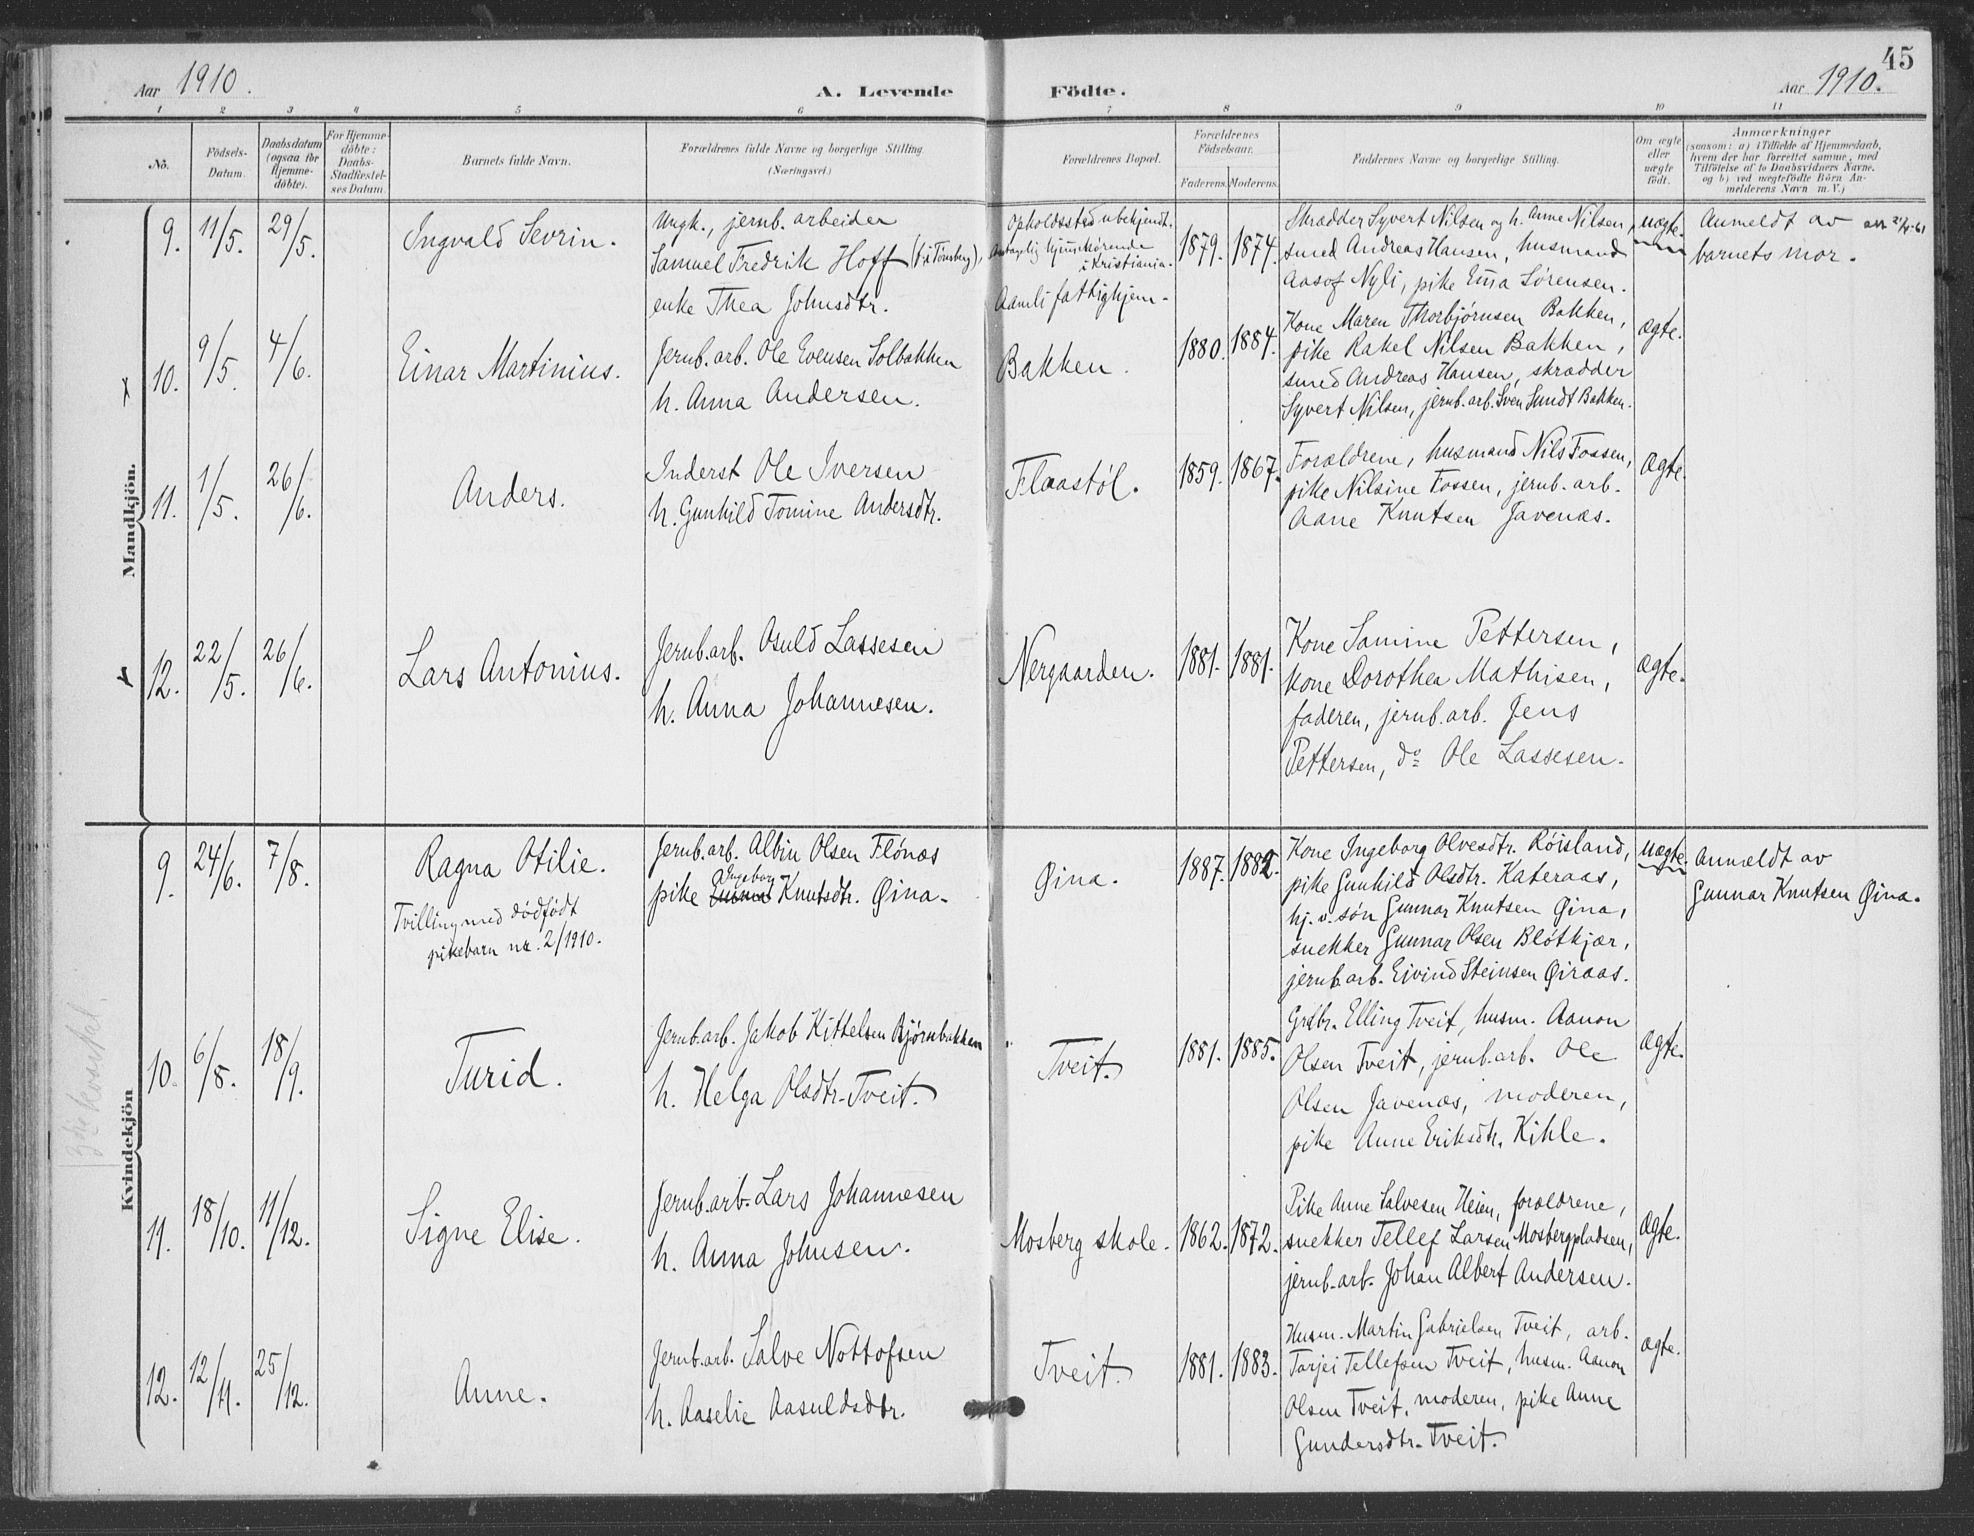 45
Aar 1910.
A. Levende Födte.
Aar 1910.
1 2 3 4 5 6 7 8 9 10 11
No.
Födsels-
Datum.
Daabsdatum
(ogsaa for
Hjemme-
döbte).
For Hjemme-
döbte:
Daabs-
Stadfæstel-
ses Datum.
Barnets fulde Navn.
Forældrenes fulde Navne og borgerlige Stilling.
(Næringsvei.)
Forældrenes Bopæl.
Forældrenes
Födselsaar.
Faderens. Moderens.
Faddernes Navne og borgerlige Stilling.
Om ægte
eller
uægte
födt.
Anmærkninger
(saasom: a) i Tilfælde af Hjemmedaab,
hvem der har forrettet samme, med
Tilföielse af to Daabsvidners Navne,
og b) ved uægtefödte Börn An-
melderens Navn m. V.)
Mandkjön.
9. 11/5. 29/5.
Ingvald Sevrin.
Ungk., jernb. arbeider
Samuel Fredrik Hoff (f. i Tönsberg),
enke Thea Johnsdtr.
Opholdssted ubekjendt.
Antagelig hjemhørende
i Kristiania.
Aamli fattighjem.
1879. 1874.
Skrædder Syvert Nilsen og h. Anne Nilsen,
smed Andreas Hansen, husmand
Aasof Nyli, pike Ema Sørensen.
uægte.
Anmeldt av
barnets mor.
10. 9/5. 4/6.
Einar Martinius.
Jernb. arb. Ole Evensen Solbakken
h. Anna Andersen.
Bakken.
1880. 1884.
Kone Maren Thorbjørnsen Bakken,
pike Rakel Nilsen Bakken,
smed Andreas Hansen, skrædder
Syvert Nilsen, jernb. arb. Sven Sundt Bakken.
ægte.
11. 1/5. 26/6.
Anders.
Inderst Ole Iversen
h. Gunhild Tomine Andersdtr.
Flaastøl.
1859. 1867.
Forældrene, husmand Nils Fossen,
pike Nilsine Fossen, jernb. arb.
Aane Knutsen Javenæs.
Ægte.
12. 22/5. 26/6.
Lars Antonius.
Jernb. arb. Osuld Lassesen
h. Anna Johannesen.
Nergaarden.
1881. 1881.
Kone Samine Pettersen,
kone Dorothea Mathisen,
faderen, jernb. arb. Jens
Pettersen, do Ole Lassesen.
ægte.
Kvindekjön
9. 24/6. 7/8.
Ragna Otilie.
Tvilling med dödfödt
pikebarn nr. 2/1910.
Jernb. arb. Albin Olsen Flönæs
Ingeborg
pike Knutsdtr. Øina.
Øina.
1887. 1882.
Kone Ingeborg Olvesdtr. Røisland,
pike Gunhild Olsdtr. Kateraas,
hj. v. søn Gunnar Knutsen Øina,
snekker Gunnar Olsen Blötkjær,
jernb. arb. Eivind Steinsen Øiraas.
uægte.
Anmældt av
Gunnar Knutsen Øina.
10. 6/8. 18/9.
Turid.
Jernb. arb. Jakob Kittelsen Bjørnbakken
h. Helga Olsdtr. Tveit.
Tveit.
1881. 1885.
Grdbr. Elling Tveit, husm. Aanon
Olsen Tveit, jernb. arb. Ole
Olsen Javenæs, moderen,
pike Anne Eriksdtr. Kihle.
Ægte.
11. 18/10. 11/12.
Signe Elise.
Jernb. arb. Lars Johannesen
h. Anna Johnsen.
Mosberg skole.
1862. 1872.
Pike Anne Salvesen Heien, forældrene,
snekker Tellef Larsen Mosbergpladsen,
jernb. arb. Johan Albert Andersen.
Ægte.
12. 12/11. 25/12.
Anne.
Jernb. arb. Salve Nottofsen
h. Aaselie Aasuldsdtr.
Tveit.
1881. 1883.
Husm. Martin Gabrielsen Tveit, arb.
Tarjei Tellefsen Tveit, husm. Aanon
Olsen Tveit, moderen, pike Anne
Gundersdtr. Tveit.
ægte.